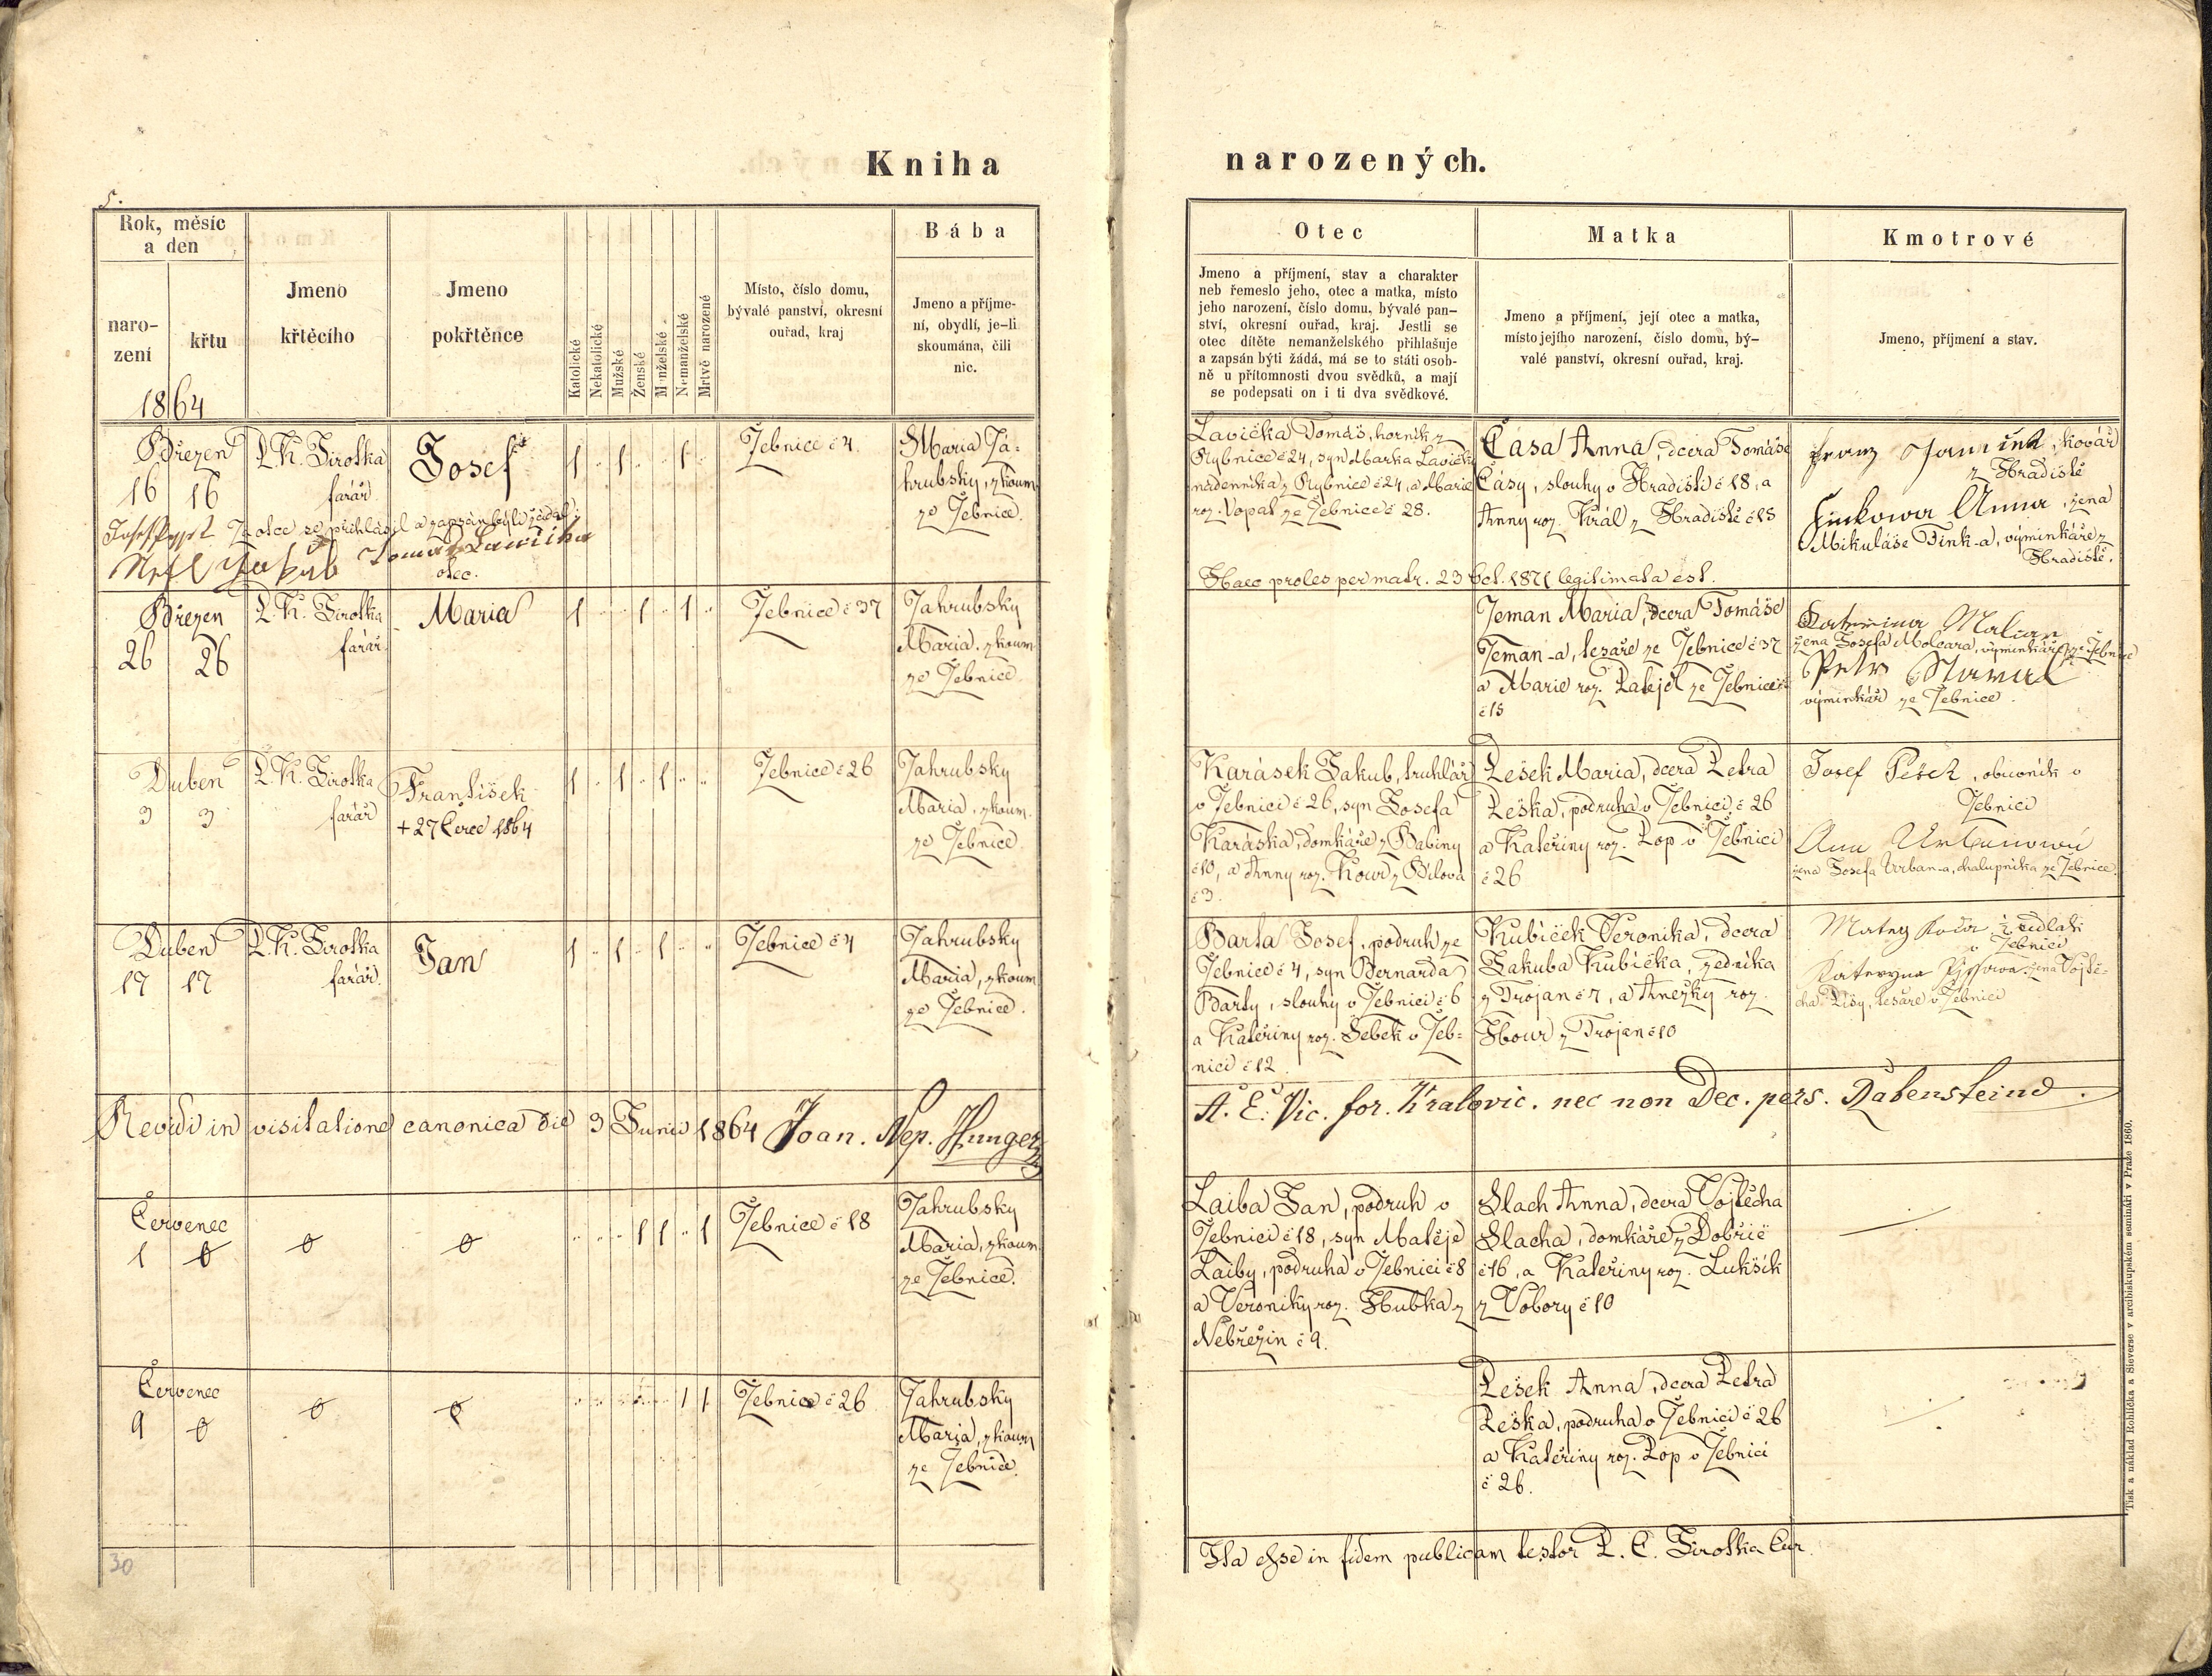 Kniha narozených.
5.
Rok, měsíc
a den
naro-
zení
křtu
1864
Jmeno
křtěcího
Jmeno
pokřtěnce
Katolické
Nekatolické
Mužské
Ženské
Manželské
Nemanželské
Mrtvě narozené
Místo, číslo domu,
bývalé panství, okresní
ouřad, kraj
Bába
Jmeno a příjme-
ní, obydlí, je-li
skoumána, čili
nic.
Otec
Jmeno a příjmení, stav a charakter
neb řemeslo jeho, otec a matka, místo
jeho narození, číslo domu, bývalé pan-
ství, okresní ouřad, kraj. Jestli se
otec dítěte nemanželského přihlašuje
a zapsán býti žádá, má se to státi osob-
ně u přítomnosti dvou svědků, a mají
se podepsati on i ti dva svědkové.
Matka
Jmeno a příjmení, její otec a matka,
místo jejího narození, číslo domu, bý-
valé panství, okresní ouřad, kraj.
Kmotrové
Jmeno, příjmení a stav.
Březen
16 16
P. K. Sirotka
farář
Josef
1 " 1 " " 1 "
Žebnice č 4.
Maria Ja-
hrubsky, zkoum.
ze Žebnice.
Za otce se přihlásil a zapsán býti žádal:
Tomaš Lawička
otec.
Lavička Tomáš, horník z
Rybnice č 24, syn Marka Lavičky
nádenníka z Rybnice č 24, a Marie
roz. Vopat ze Žebnice č 28.
Časa Anna, dcera Tomáše
Čásy, slouhy v Hradišti č 18, a
Anny roz. Král z Hradiště č 15
Franz, kovář
z Hradiště
Finkowa Anna, žena
Mikuláše Fink-a, výminkáře z
Hradiště.
Haec proles per matr. 23 Oct. 1871 legitimata est.
Březen
26 26
P. K. Sirotka
farář
Maria
1 " " 1 " 1 "
Žebnice č 37
Jahrubsky
Maria, zkoum.
ze Žebnice.
Zeman Maria, dcera Tomáše
Zeman-a, tesaře ze Žebnice č 37
a Marie roz. ze Žebnice
č 15
Katerina
žena Josefa, výminkáře ze Žebnice
Petr
výminkář ze Žebnice.
Duben
3 3
P. K. Sirotka
farář
František
+ 27 Čerce 1864
1 " 1 " 1 " "
Žebnice č 26
Jahrubsky
Maria, zkoum.
ze Žebnice.
Karásek Jakub, truhlář
v Žebnici č 26, syn Josefa
Karáska, domkáře z Babiny
č 10, a Anny roz. Kour z Bílova
č 3.
Pešek Maria, dcera Petra
Peška, podruha v Žebnici č 26
a Kateřiny roz. Pop v Žebnici
č 26
Josef Pešek, obuvník v
Žebnici
Ana Urbanowa
žena Josefa Urban-a, chalupníka ze Žebnice.
Duben
17 17
P. K. Sirotka
farář.
Jan
1 " 1 " 1 " "
Žebnice č 4
Jahrubsky
Maria, zkoum
ze Žebnice.
Barta Josef, podruh ze
Žebnice č 4, syn Bernarda
Barty, slouhy v Žebnici č 6
a Kateřiny roz. Šebek v Žeb-
nici č 12.
Kubíček Veronika, dcera
Jakuba Kubíčka, zedníka
z Trojan č 7, a Anežky roz.
Hour z Trojan č 10
Matej, sedlák
v Žebnici
Kateryna, žena Vojtě-
cha, tesaře v Žebnici
Revidi in visitatione canonica die 3 Junii 1864 Joan. Nep. Hunger
A. E. Vic. for. Kralovic. nec non Dec. pers. Rabensteine.
Červenec
1 0
0
0
" " " 1 1 " 1
Žebnice č 18
Jahrubsky
Maria, zkoum.
ze Žebnice.
Laiba Jan, podruh v
Žebnici č 18, syn Matěje
Laiby, podruha v Žebnici č 8
a Veroniky roz. Hubka z
Nebřezin č 9.
Slach Anna, dcera Vojtěcha
Slacha, domkáře z Dobříč
č 16, a Kateřiny roz. Lukšík
z Vobory č 10
Červenec
9 0
0
0
1 1
Žebnice č 26
Jahrubsky
Maria, zkoum
ze Žebnice.
Pešek Anna, dcera Petra
Peška, podruha v Žebnici č 26
a Kateřiny roz. Pop v Žebnici
č 26.
30
Ita esse in fidem publicam testor P. C. Sirotka Cur.
Tisk a náklad Rohlíčka a Sieverse v arcibiskupském semináři v Praze 1860.